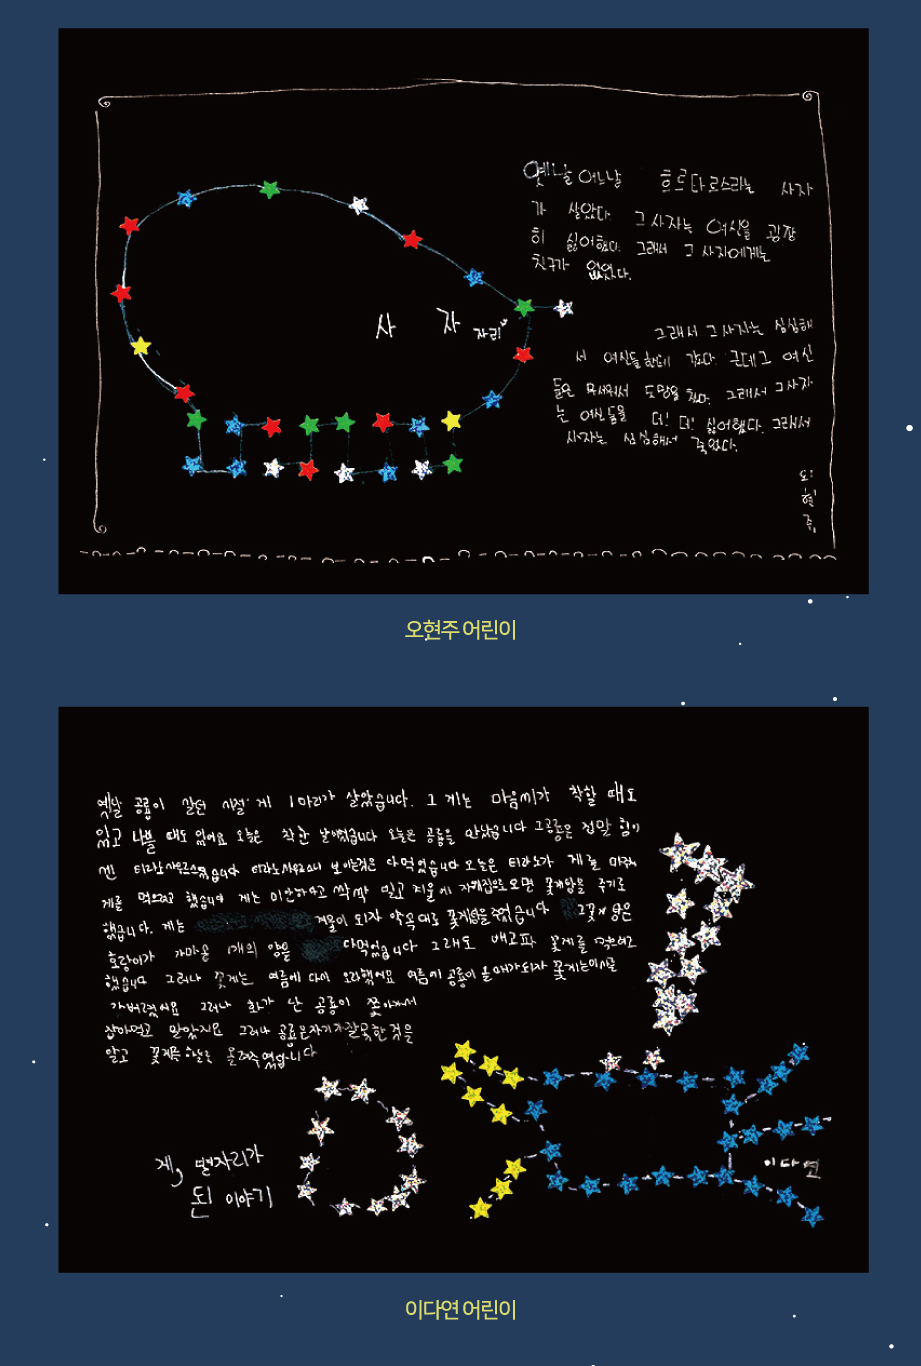 옛날 어느날 흐르다로스라는 사자
가 살았다. 그 사자는 여신을 굉장
히 싫어했다. 그래서 그 사자에게는
친구가 없었다.
사 자 자리
그래서 그 사자는 심심해
서 여신들한테 갔다. 근데 그 여신
들은 무서워서 도망을 쳤다. 그래서 그 사자
는 여신들을 더! 더! 싫어했다. 그래서
사자는 심심해서 죽었다.
오
현
주
오현주 어린이
옛날 공룡이 살던 시절 게 1마리가 살았습니다. 그 게는 마음씨가 착할 때도
있고 나쁠 때도 있어요 오늘은 착한 날이였습니다 오늘은 공룡을 만났습니다 그공룡은 정말 힘이
센 티라노사우르스였습니다 보이는것은 다먹었습니다 오늘은 티라노가 게를 마주
게를 먹으려고 했습니다 게는 미안하다고 싹싹 빌고 겨울에 자기집으로오면 꽃게알을 주기로
했습니다. 게는 겨울이 되자 약속대로 꽃게알을주었습니다 그꽃게 알은
호랑이가 가마솥 1개의 양을 다먹었습니다 그래도 배고파 꽃게를 먹으려고
했습니다 그러나 꽃게는 여름에 다시 오라했어요 여름이 공룡이 올때가되자 꽃게는이사를
가버렸어요 그러나 화가 난 공룡이 쫓아가서
잡아먹고 말았지요 그러나 공룡은자기가잘못한것을
알고 꽃게를 하늘로 올려주었습니다
게, 별자리가
된 이야기
이다연
이다연 어린이